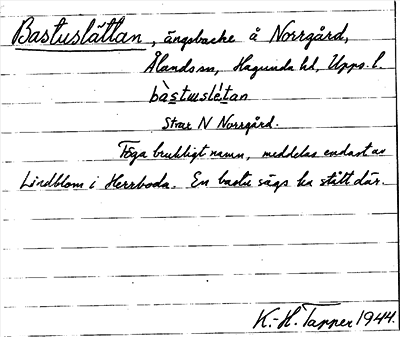 Bastuslättan, ängsbacke å Norrgård,
Ålands sn, Hagunda hd, Upps. l.
bàstuslè́tan
Strax N Norrgård.
Föga brukligt namn, meddelas endast av
Lindblom i Herrboda. En bastu sägs ha stått där.
K.-H. Tapper 1944.